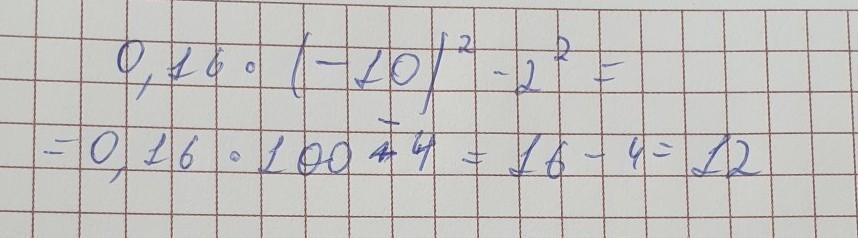 0,16 · (-10)² - 2² =
= 0,16 · 100 - 4 = 16 - 4 = 12